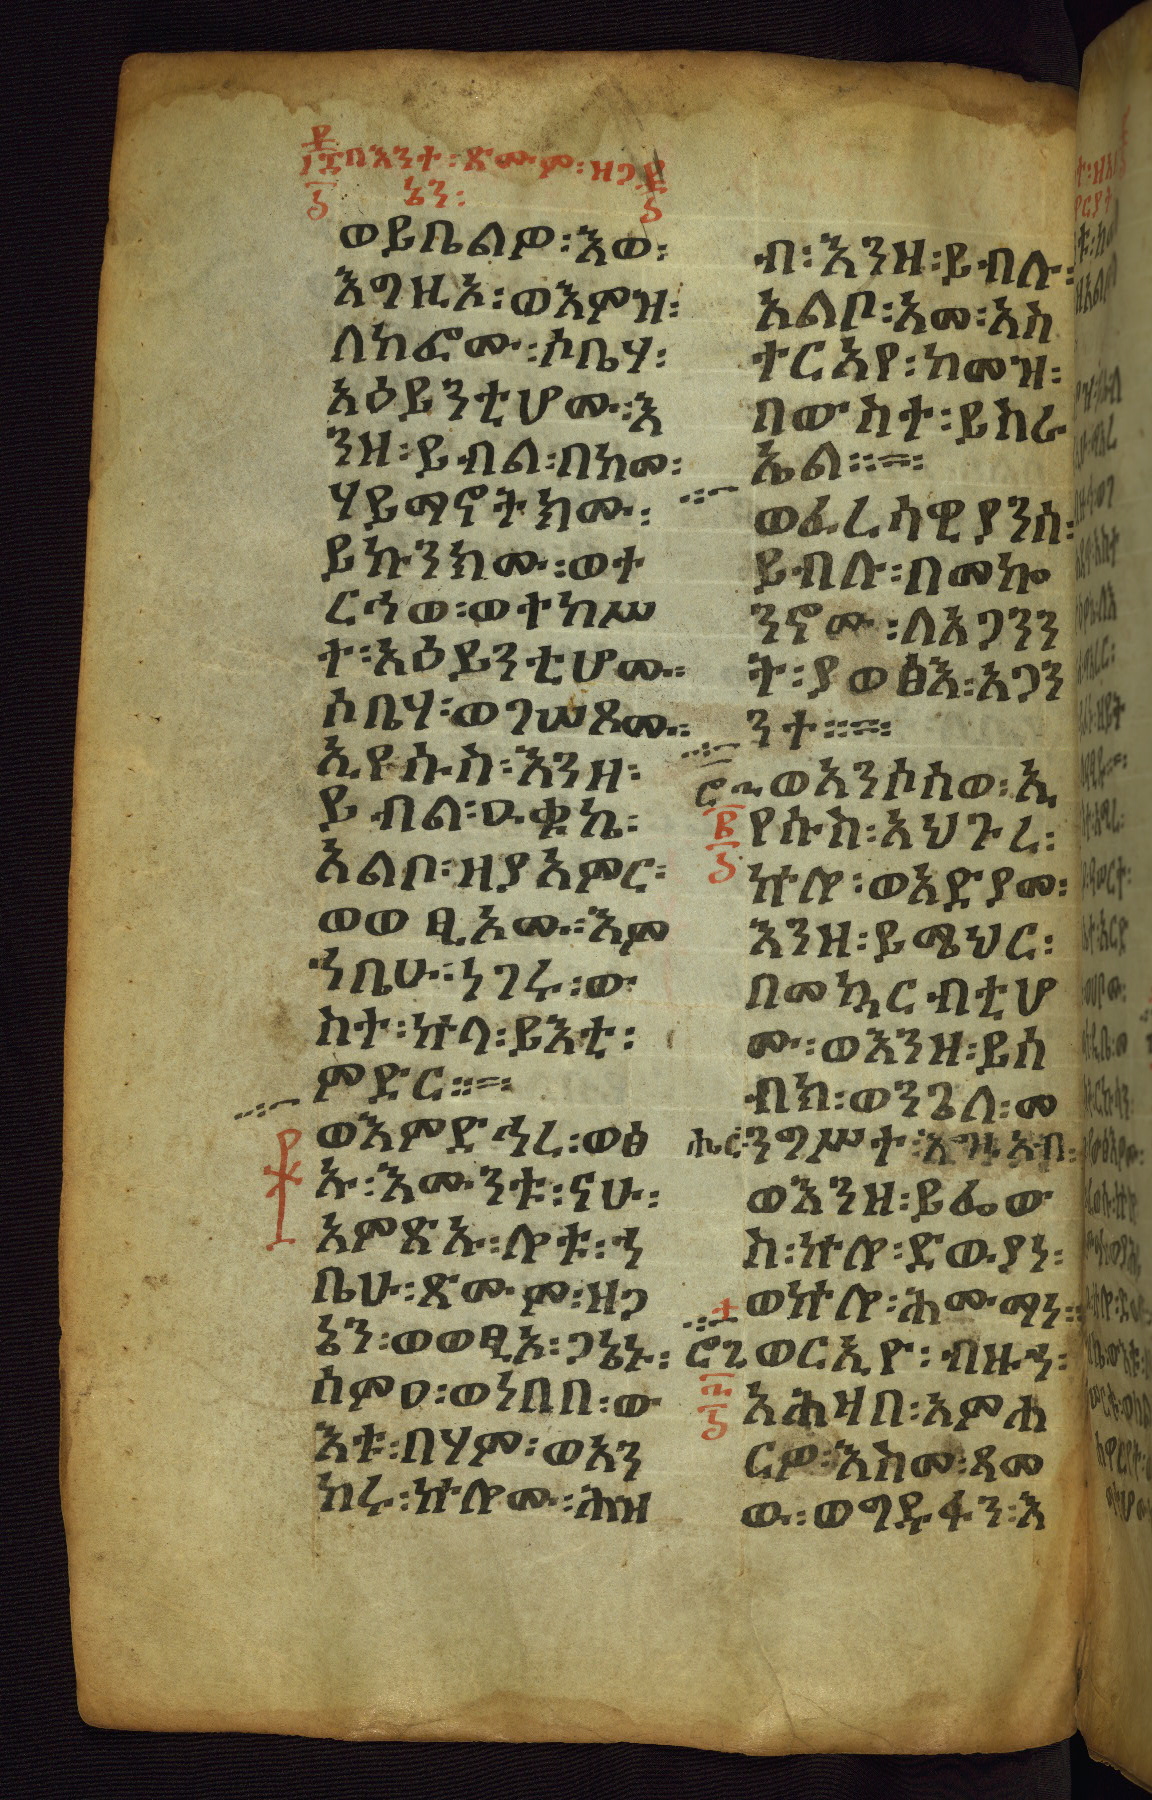 በእንተ፡ጽሙም፡ዘጋ
ኔን፡
ወይቤልዎ፡እወ፡
እግዚኦ፡ወእምዝ፡
ለከፎሙ፡ሶቤሃ፡
አዕይንቲሆሙ፡እ
ንዘ፡ይብል፡በከመ፡
ሃይማኖትክሙ፡
ይኩንክሙ፡ወተ
ርኅወ፡ወተከሥ
ተ፡አዕይንቲሆሙ፡
ሶቤሃ፡ወገሠጾሙ፡
ኢየሱስ፡እንዘ፡
ይብል፡ዑቁኬ፡
አልቦ፡ዘያአምር፡
ወወፂኦሙ፡እም
ኀቤሁ፡ነገሩ፡ው
ስተ፡ኵላ፡ይእቲ፡
ምድር።
ወእምድኅረ፡ወፅ
ኡ፡እሙንቱ፡ናሁ፡
አምጽኡ፡ሎቱ፡ኀ
ቤሁ፡ጽሙም፡ዘጋ
ኔን፡ወወፂኦ፡ጋኔኑ፡
ሰምዐ፡ወነበበ፡ው
እቱ፡በሃም፡ወአን
ከሩ፡ኵሎሙ፡ሕዝ
ብ፡እንዘ፡ይብሉ፡
አልቦ፡አመ፡አስ
ተርአየ፡ከመዝ፡
በውስተ፡ይስራ
ኤል።
ወፈረሳዊያንሰ፡
ይብሉ፡በመኰ
ንኖሙ፡ለአጋንን
ት፡ያወፅእ፡አጋን
ንተ።
ወአንሶሰወ፡ኢ
የሱስ፡አህጉረ፡
ኵሎ፡ወአድያመ፡
እንዘ፡ይሜህር፡
በመኳርብቲሆ
ሙ፡ወእንዘ፡ይሰ
ብክ፡ወንጌለ፡መ
ንግሥተ፡እግዚአብ፡
ሔር፡
ወእንዘ፡ይፌው
ስ፡ኵሎ፡ድውያነ፡
ወኵሎ፡ሕሙማነ፡
ወርእዮ፡ብዙኀ፡
አሕዛበ፡አምሐ
ርዎ፡እስመ፡ጻመ
ው፡ወግዱፋን፡እ